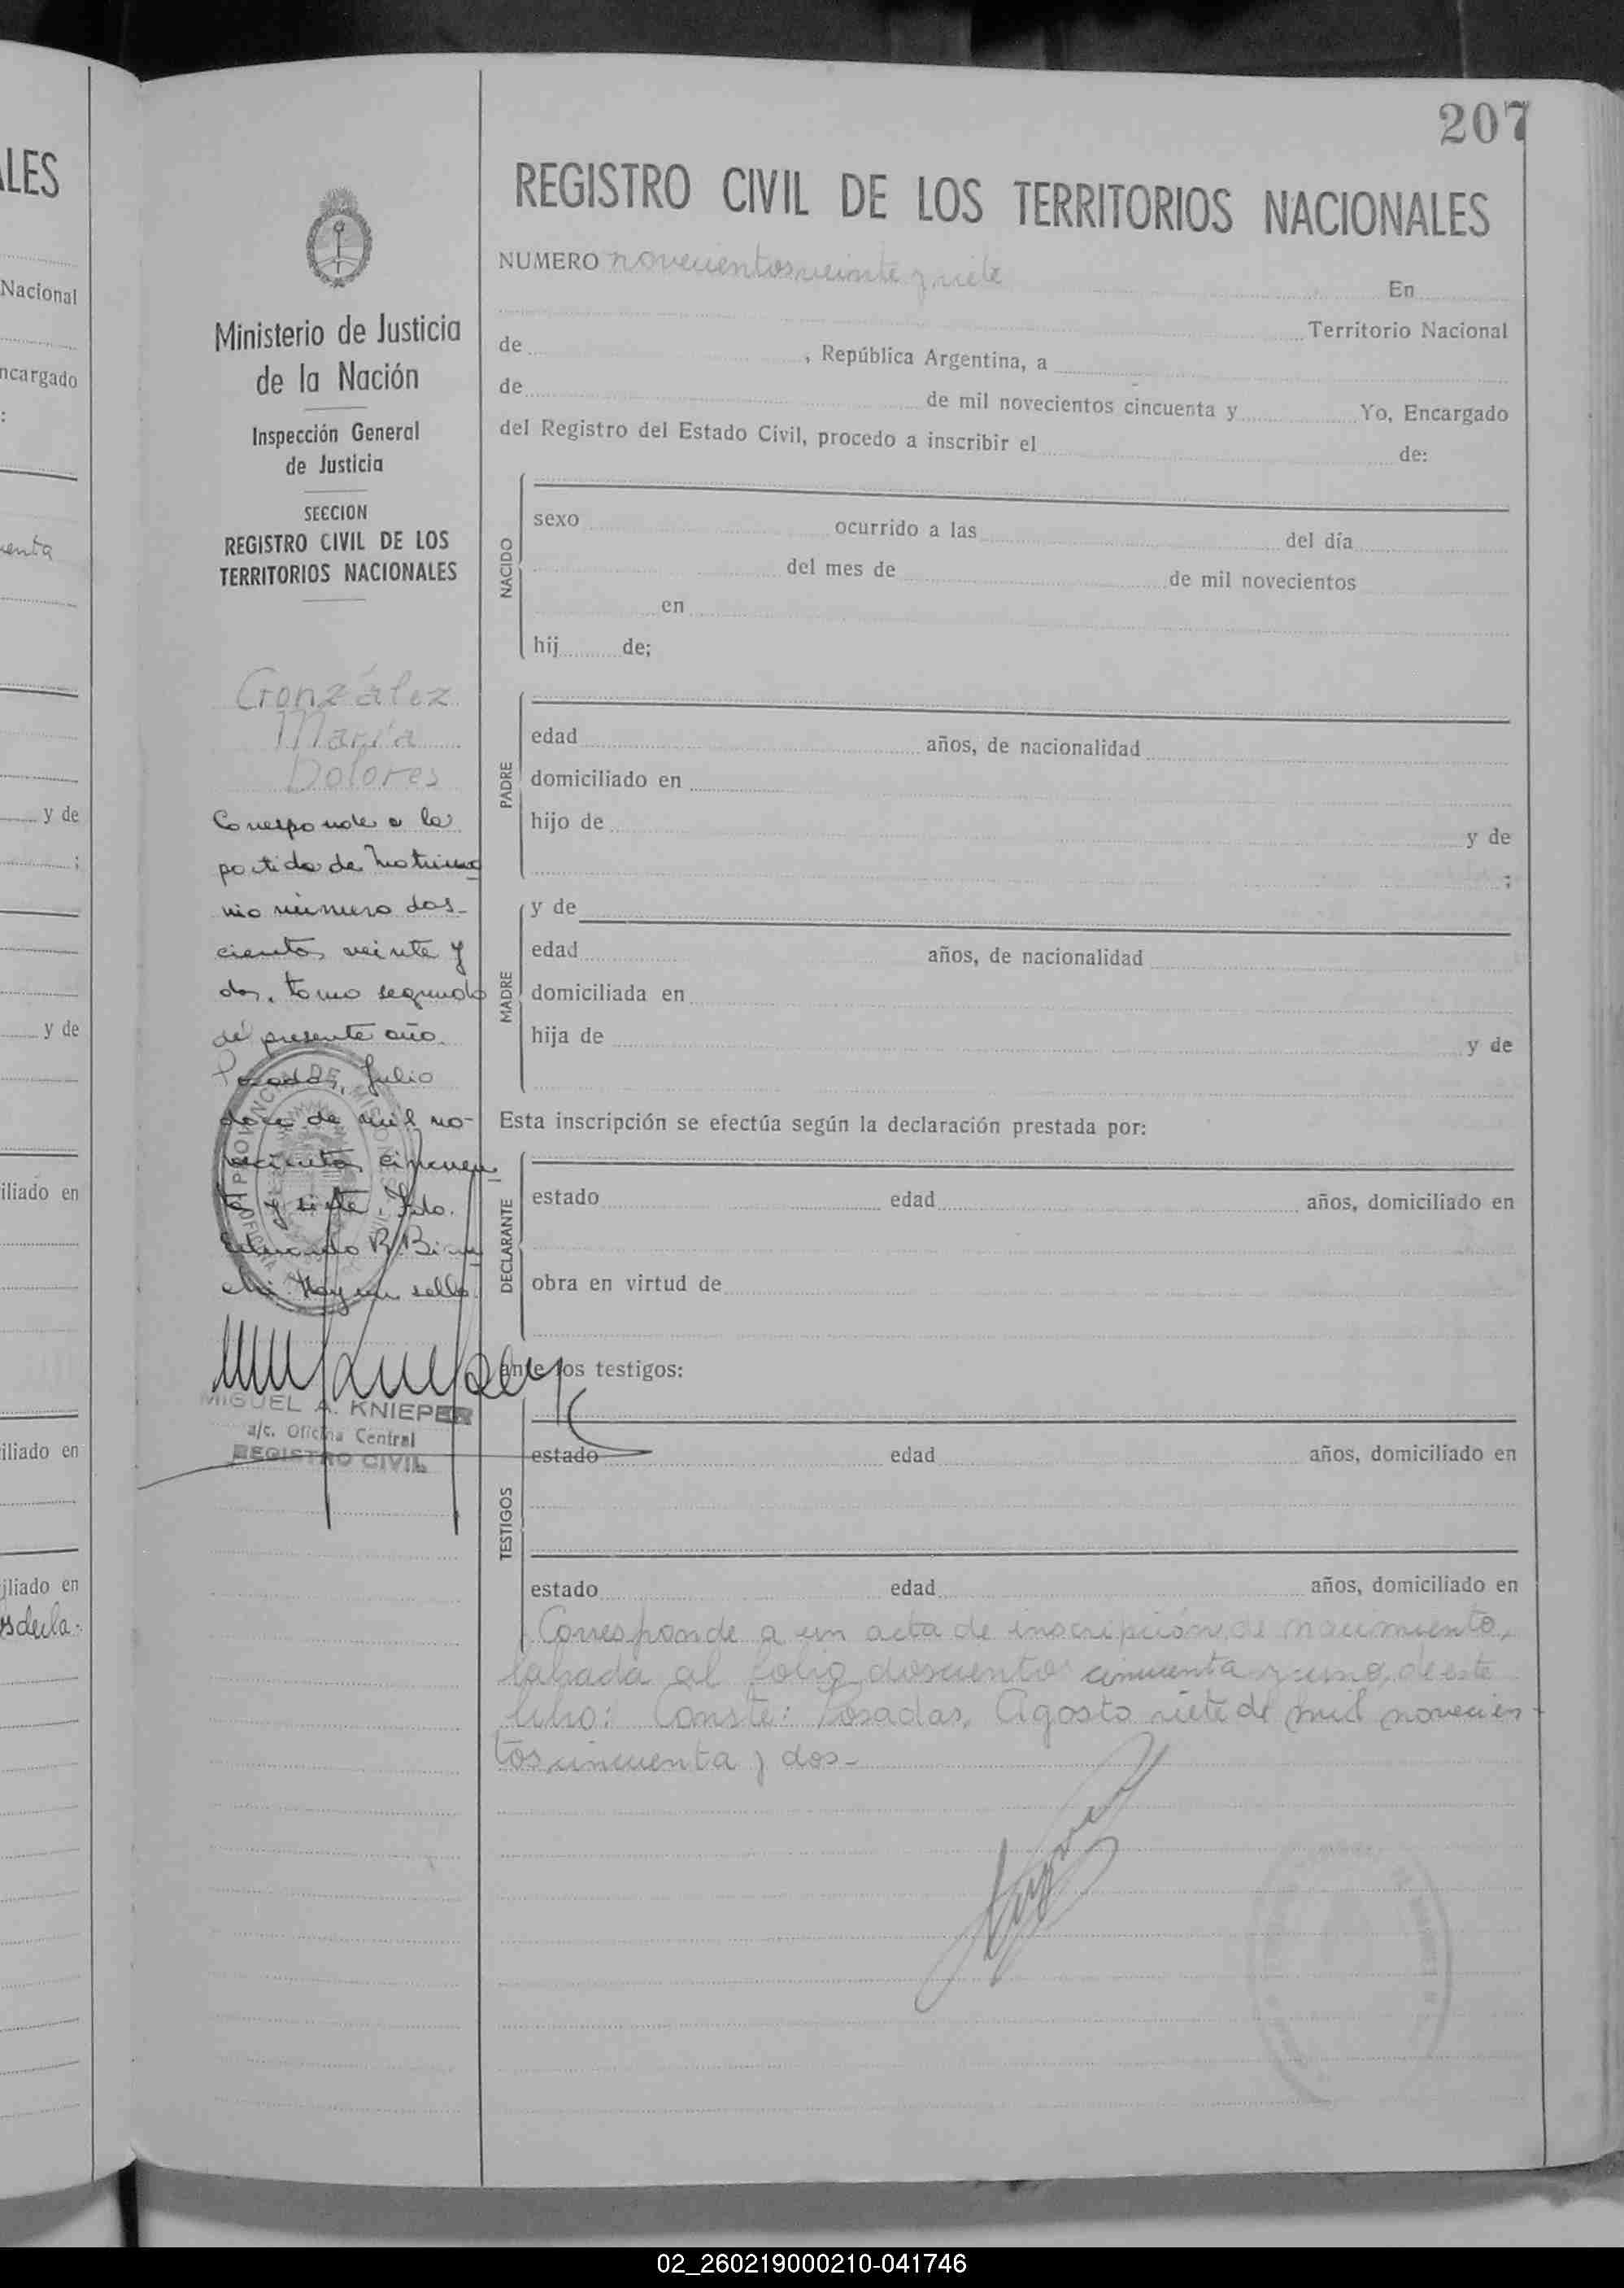 207
LES
Nacional
ncargado
:
enta
y de
;
y de
iliado en
iliado en
iliado en
Ministerio de Justicia
de la Nación
Inspección General
de Justicia
SECCION
REGISTRO CIVIL DE LOS
TERRITORIOS NACIONALES
González
María
Dolores
Corresponde a la
partida de matrimo
nio número dos-
cientos veinte y
dos, tomo segundo
del presente año.
Posadas, Julio
doce de mil no-
vecientos cincuen
ta y siete. Fdo.
Eduardo R.
Hay un sello.
PROVINCIA DE MISIONES
MIGUEL A. KNIEPER
a/c. Oficina Central
REGISTRO CIVIL
REGISTRO CIVIL DE LOS TERRITORIOS NACIONALES
NUMERO novecientos veinte y siete En
Territorio Nacional
de , República Argentina, a
de de mil novecientos cincuenta y Yo, Encargado
del Registro del Estado Civil, procedo a inscribir el de:
NACIDO
sexo ocurrido a las del día
del mes de de mil novecientos
en
hij de;
PADRE
edad años, de nacionalidad
domiciliado en
hijo de y de
;
MADRE
y de
edad años, de nacionalidad
domiciliada en
hija de y de
Esta inscripción se efectúa según la declaración prestada por:
DECLARANTE
estado edad años, domiciliado en
obra en virtud de
ante los testigos:
TESTIGOS
estado edad años, domiciliado en
estado edad años, domiciliado en
Corresponde a un acta de inscripción de nacimiento,
labrada al folio doscientos cincuenta y uno, de este
libro: Conste: Posadas, Agosto siete de mil novecien-
tos cincuenta y dos-
02_260219000210-041746